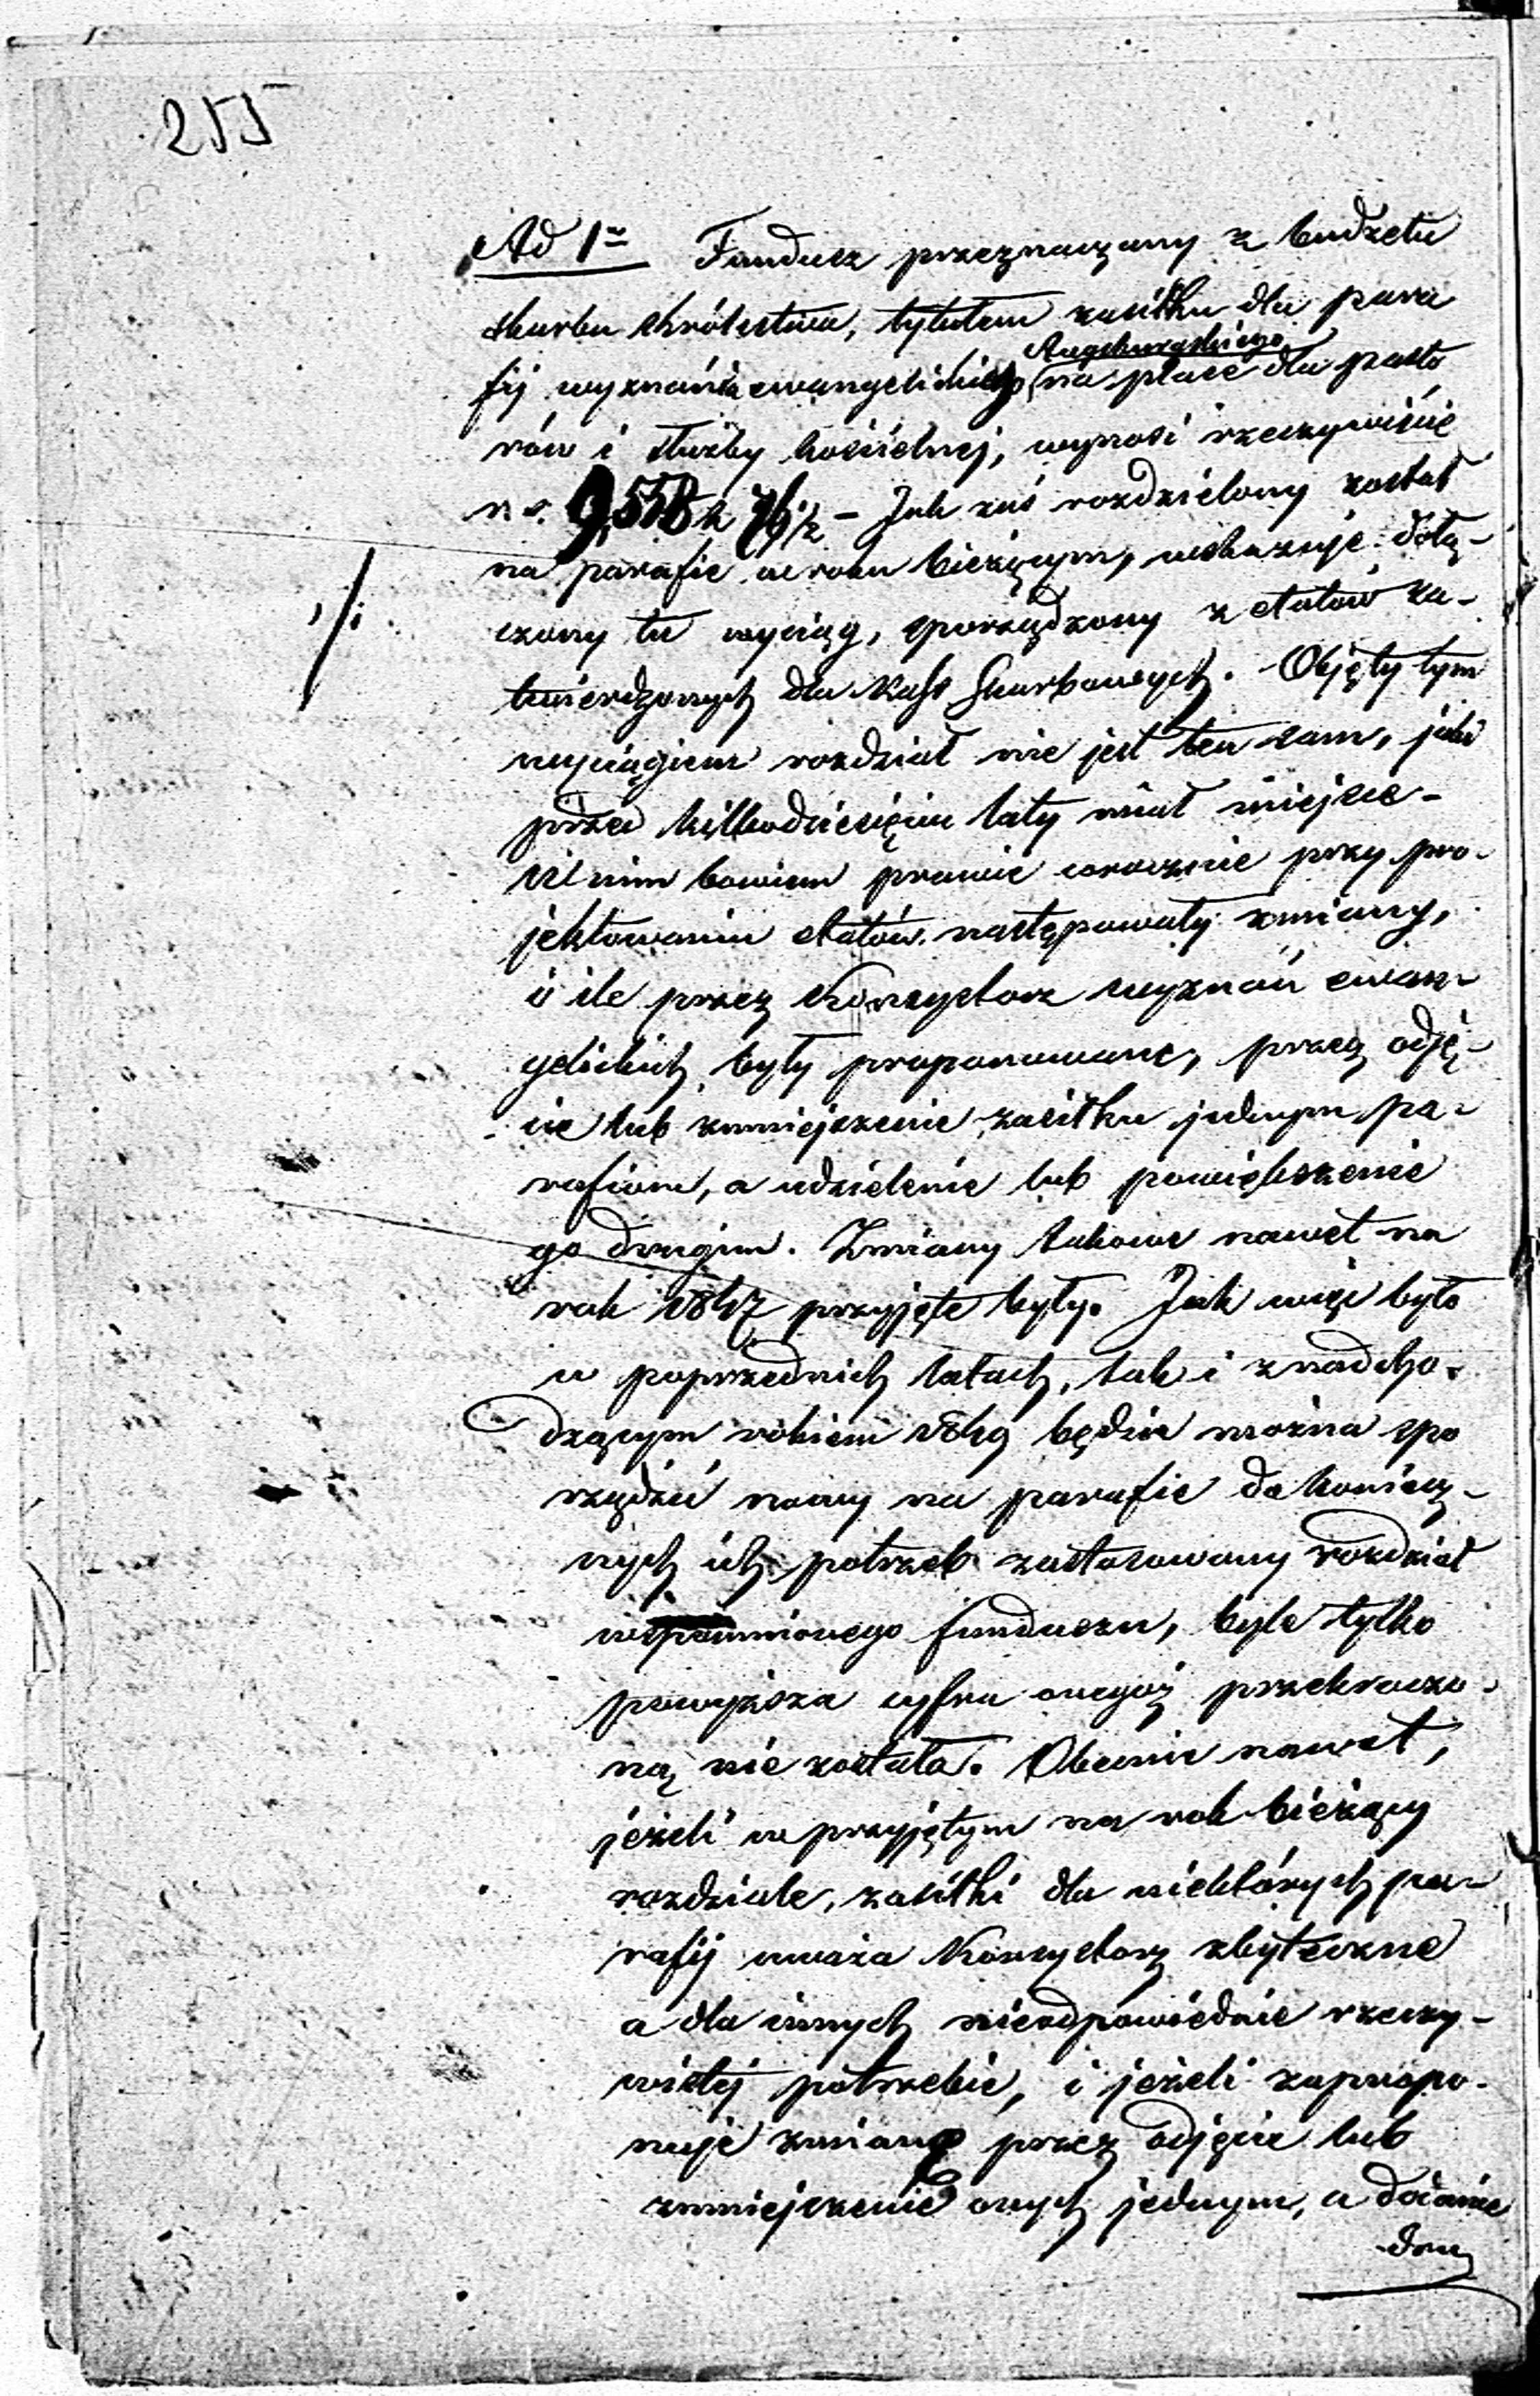 255
Ad 1m Fundusz przeznaczony z budżetu
skarbu Królestwa, tytułem zasiłku dla para
Augsburgskiego
fij wyznania ewangelickiego na płace dla pasto
rów i służby kościelnej, wynosi rzeczywiście
r. s. 9,558 k – Jak zaś rozdzielony został
na parafie w roku bieżącym, wskazuje dołą-
czony tu wyciąg, sporządzony z etatów za-
twierdzonych dla Kass Skarbowych. Objęty tym
wyciągiem rozdział nie jest ten sam, jaki
przed kilkodziesięciu laty miał miejsce –
W nim bowiem prawie corocznie przy pro-
jektowaniu etatów następowały zmiany,
o ile przez Konsystorz wyznań ewan-
gelickich były proponowane, przez odję-
cie lub zmniejszenie zasiłku jednym pa-
rafiom, a udzielenie lub powiększenie
go drugim. Zmiany takowe nawet na
rok 1847 przyjęte były. Jak więc było
w poprzednich latach, tak i z nadcho-
dzącym rokiem 1849 będzie można spo
rządzić nowy na parafie do koniecz-
nych ich potrzeb zastosowany rozdział
wspomnionego funduszu, byle tylko
powyższa cyfra onegoż przekroczo-
ną nie została. Obecnie nawet,
jeżeli w przyjętym na rok bieżący
rozdziale, zasiłki dla niektórych pa-
rafij uważa Konsystorz zbyteczne
a dla innych nieodpowiednie rzeczy-
wistej potrzebie, i jeżeli zapropo-
nuje zmianę przez odjęcie lub
zmniejszenie onych jednym, a dodanie
dru